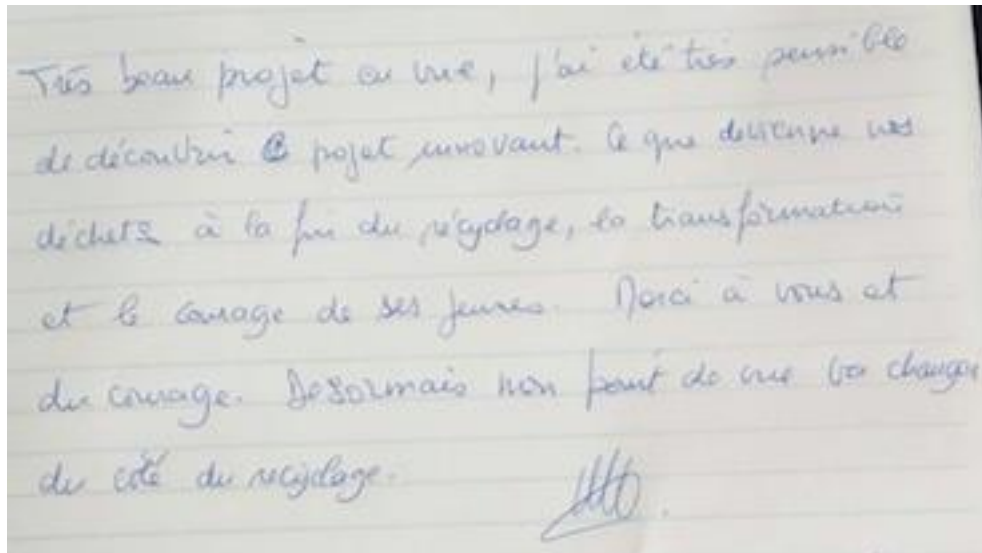 Très beau projet en vue, j'ai été très sensible
de découvrir ce projet innovant. Ce que devienne nos
déchets à la fin du récyclage, la transformation
et le courage de ses jeunes. Merci à vous et
du courage. Desormais mon point de vue va changer
du côté du recyclage.